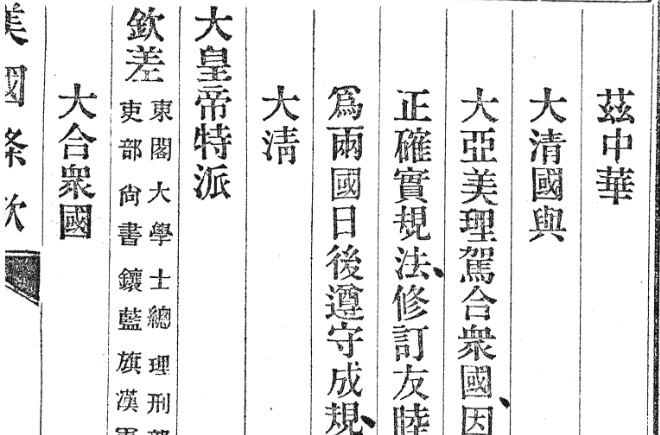 茲中華
大清國與
大亞美理駕合衆國因、
正確實規法、修訂友睦
爲兩國日後遵守成規、
大清
大皇帝特派
欽差
東閣大學士總理刑部
吏部尙書鑲藍旗漢軍
大合衆國
美國條款